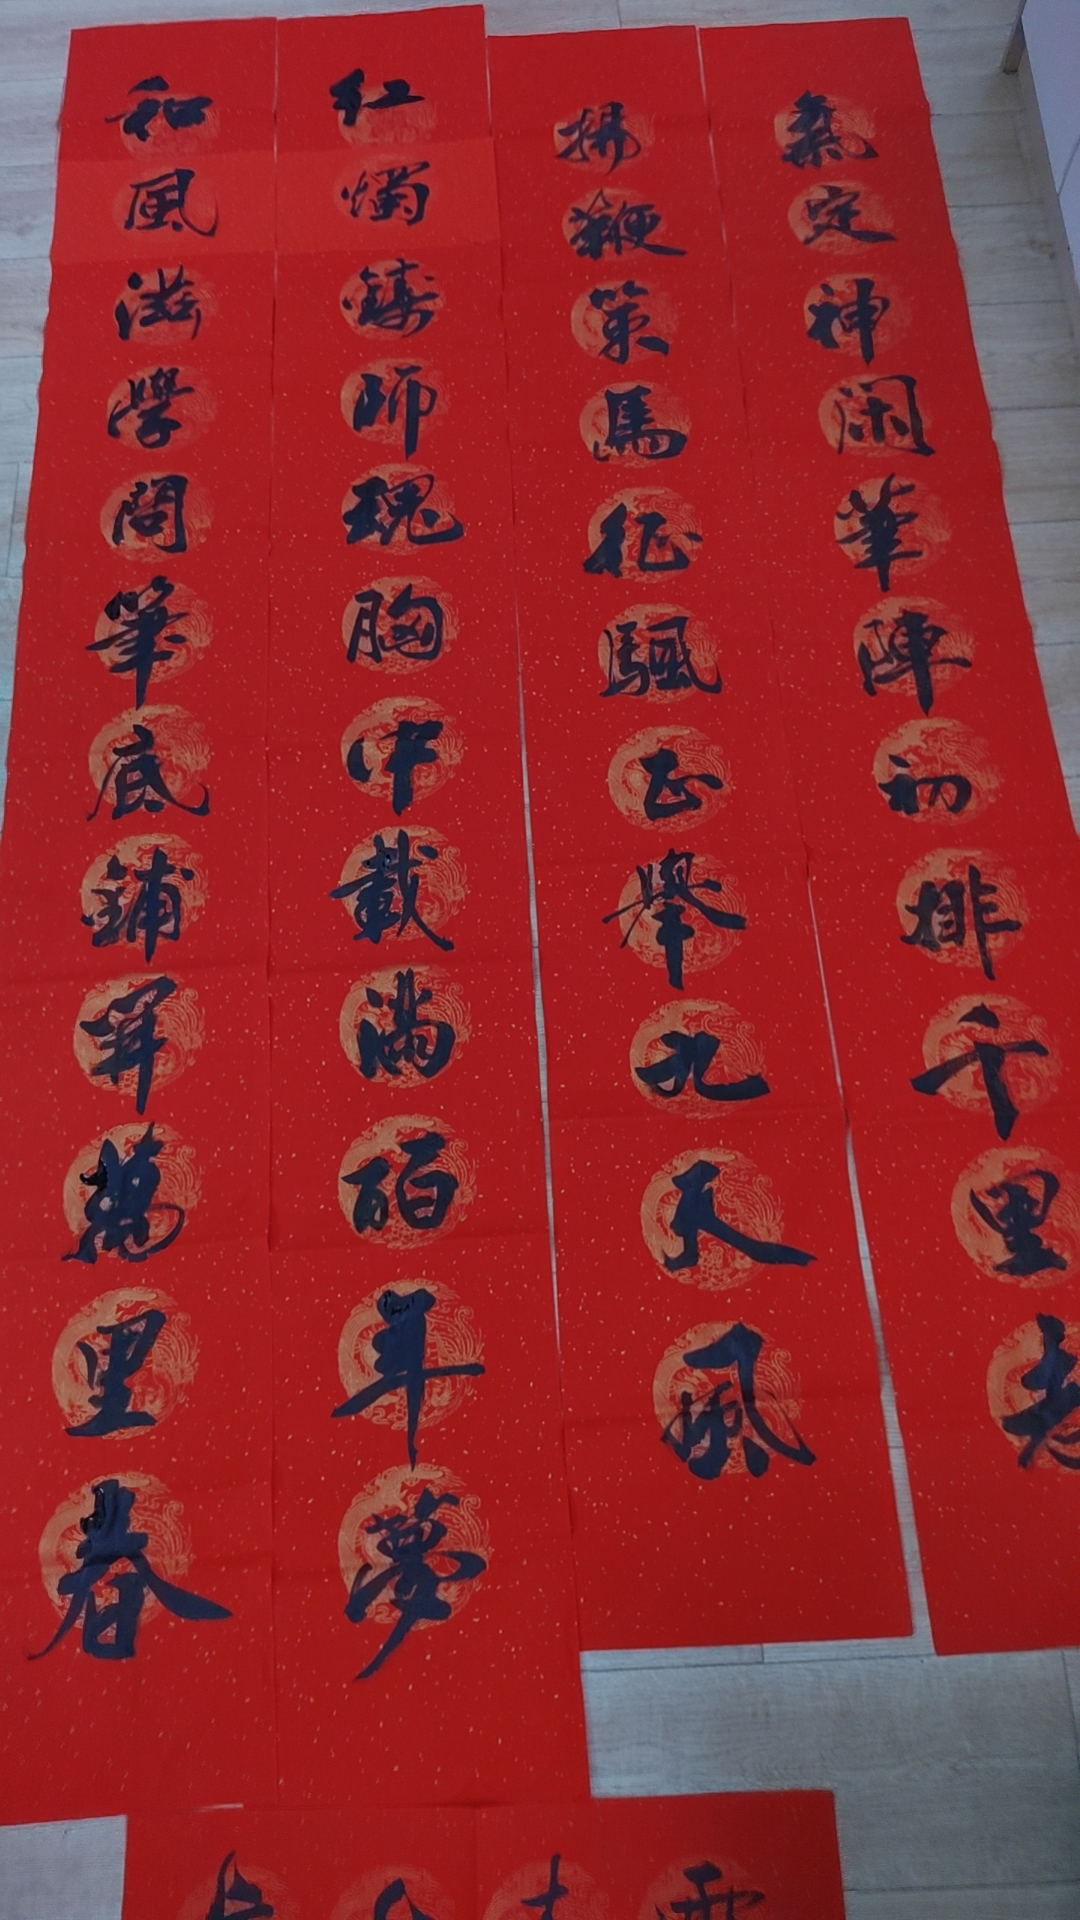 氣定神閑筆陣初排千里
揚鞭策馬征颿正舉九天風
紅燭鑄師魂胸中載滿百年夢
和風滋學問筆底鋪開萬里春